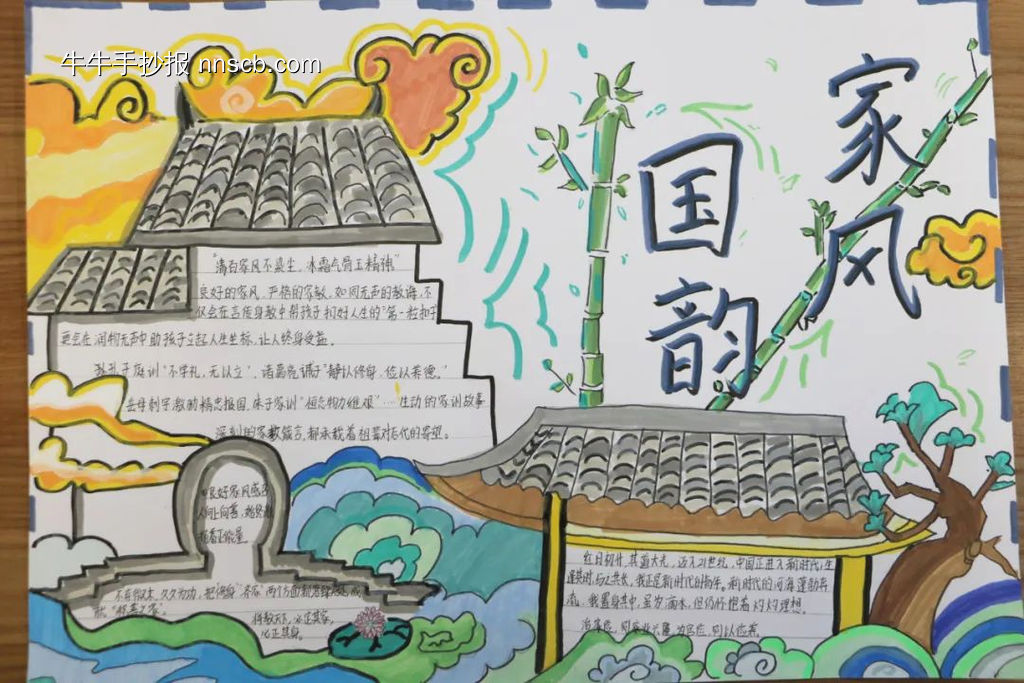 牛牛手抄报 nnscb.com
家风
国韵
"清白家风不染尘,冰霜气骨玉精神"
良好的家风,严格的家教,如同无声的教诲,不
仅会在言传身教中帮孩子扣好人生的"第一粒扣子
更会在润物无声中助孩子立起人生坐标,让人终身受益。
孔子庭训"不学礼,无以立",诸葛亮诫子"静以修身,俭以养德。"
岳母刺字激励精忠报国,朱子家训"恒念物力维艰"…生动的家训故事
深刻的家教箴言,都承载着祖辈对后代的寄望。
良好家风感召
人向上向善,始终
正能量。
久久为功,把"修身""齐家"两个方面
将教天下,必定其家,
必正其身。
红日初升,其道大光,迈入21世纪,中国正进入新时代,生
逢其时,与之共长,我正是新时代的青年。新时代的河海蓬勃奔
流,我置身其中,虽为滴水,但仍怀抱着灼灼理想。